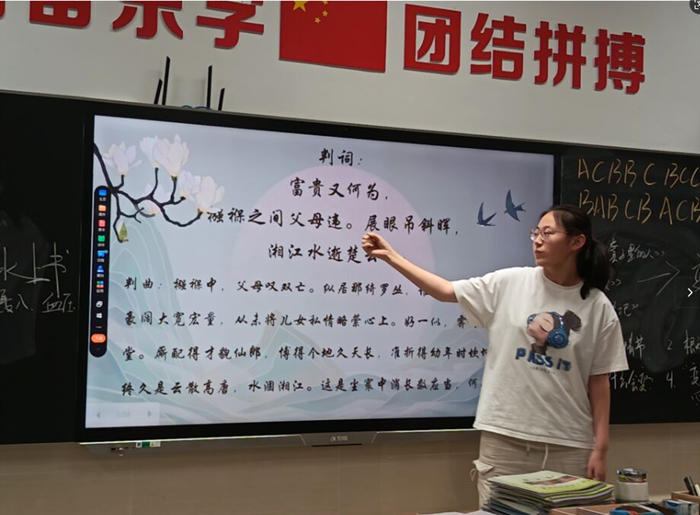 奋乐学 团结拼搏
判词：
富贵又何为，
襁褓之间父母违。展眼吊斜晖，
湘江水逝楚云
判曲：襁褓中，父母叹双亡。纵居那绮罗丛，
豪阔大宽宏量，从未将儿女私情略萦心上。好一似，霁
堂。厮配得才貌仙郎，博得个地久天长，准折得幼年时坎
终久是云散高唐，水涸湘江。这是尘寰中消长数应当，何
ACBB C BCC
BABCB ACB
PASS IT